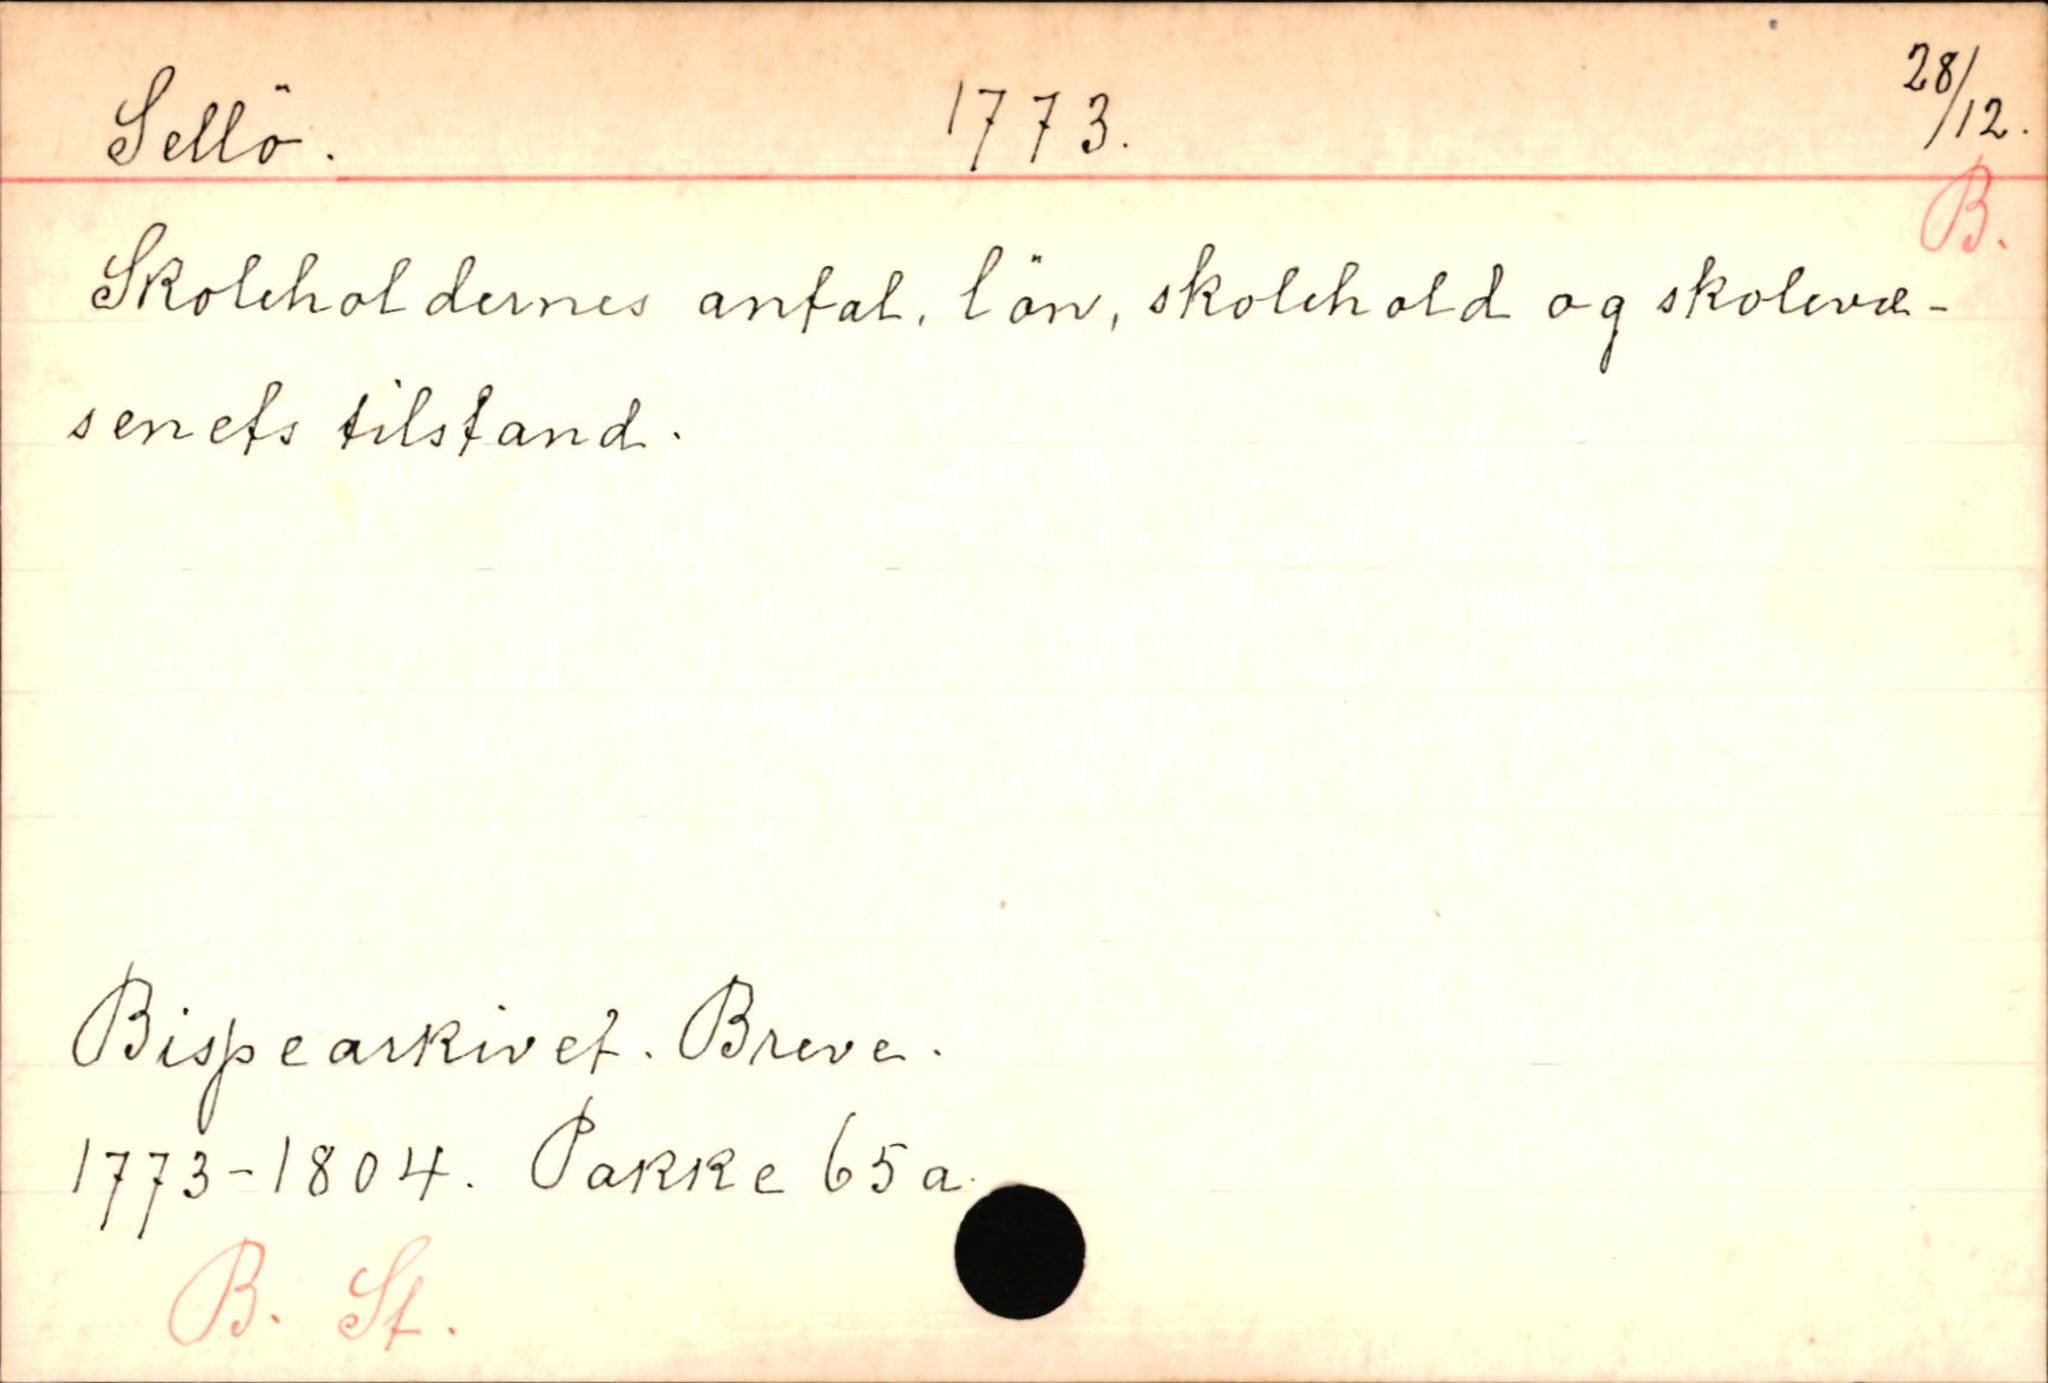 Sellö. 1773. 28/12.
B.
Skoleholdernes antal, lön, skolehold og skolevæ-
senets tilstand.
Bispearkivet. Breve.
1773-1804. Pakke 65a.
B. St.